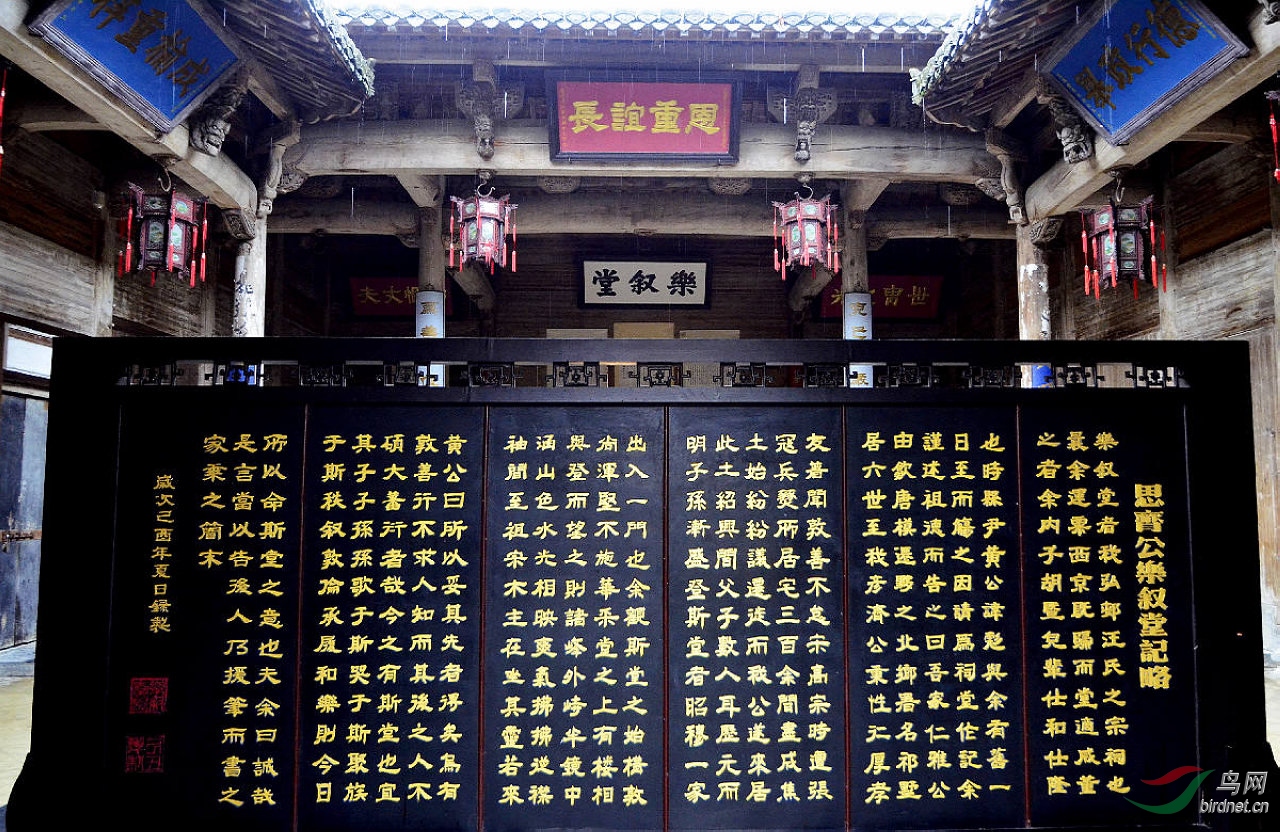 恩重誼長
樂叙堂
思齊公樂叙堂記略
樂叙堂者我弘邨汪氏之宗祠也
曩余運票西京既歸而堂適成董
之者余内子胡暨兒輩仕和仕隆
也時縣尹黃公諱與余有善一
日至而觴之因請爲祠堂作記余
謹述祖德而告之曰吾家仁雅公
由歙唐模遷黟之北鄉署名祁墅
居六世至我彥濟公秉性仁厚孝
友著聞敦善不怠宗高宗時遭張
寇兵燹所居宅三百余間盡成焦
土始紛紛議遷徙而我公遂來居
此土紹興間父子數人耳歷元而
明子孫漸盛登斯堂者昭穆一家
出入一門也余觀斯堂之始構敦
尚渾堅不施華采堂之上有樓相
與登而望之則諸峰外峙半鏡中
涵山色水光相映爽氣拂拂送襟
袖間至祖宗木主在坐其靈若來
黃公曰所以妥其先者得矣焉有
敦善行不求人知而其後之人不
碩大蕃衍者哉今之有斯堂也宜
其子子孫孫歌于斯哭于斯聚族
于斯秩叙敦倫承履和樂則今日
所以命斯堂之意也夫余曰誠哉
是言當以告後人乃援筆而書之
家乘之簡末
歲次己酉年夏日錄製
鸟网
birdnet.cn